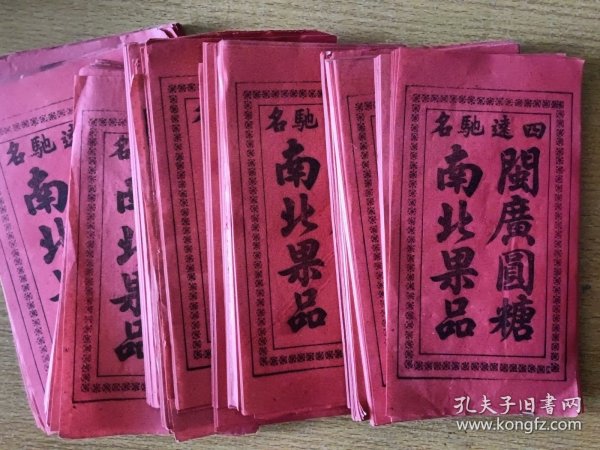 四遠馳名
閩廣圓糖
南北果品
馳名
南北果品
名
南北果品
遠馳名
南北
孔夫子旧书网
www.kongfz.com